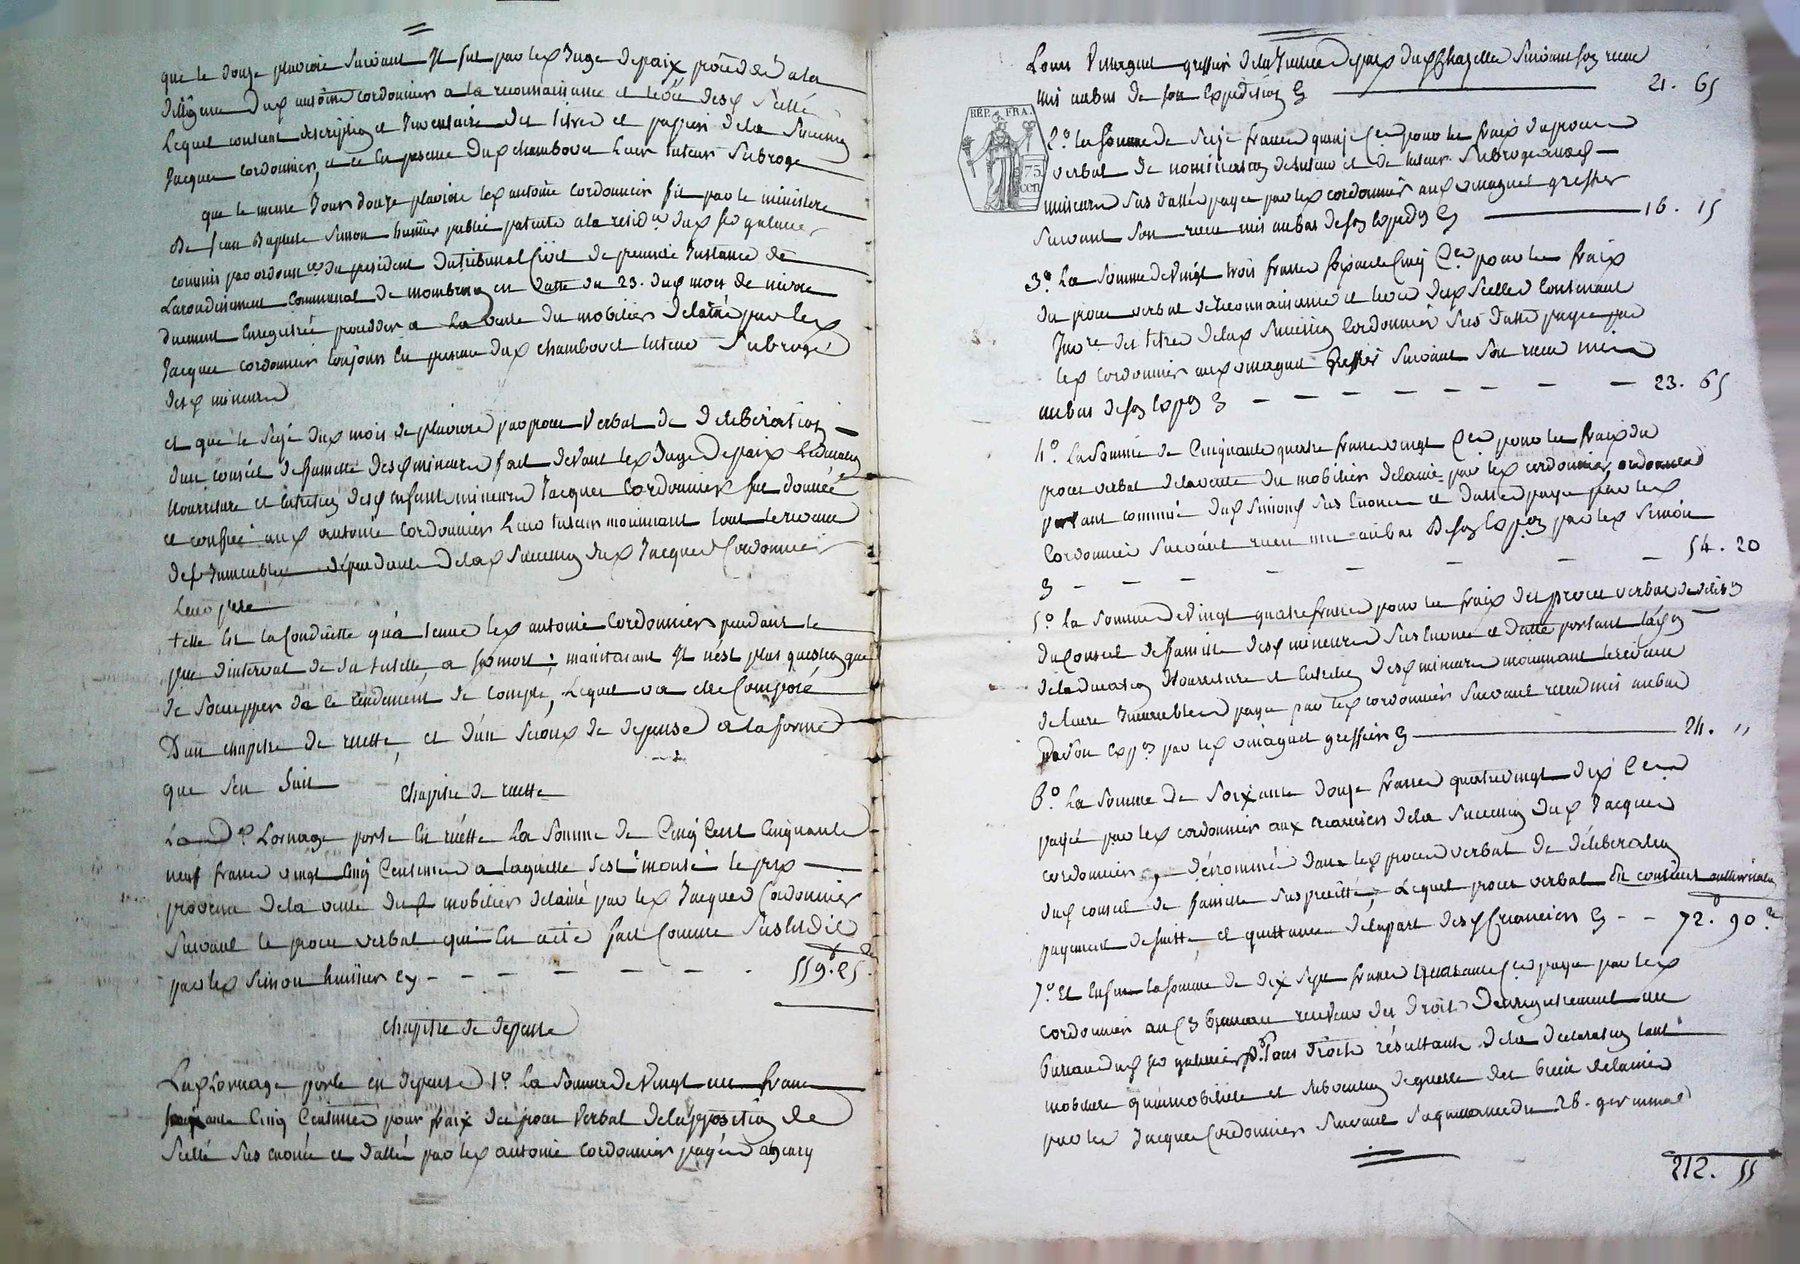 que le douze pluviose suivant Il fut par led Juge de paix procédé a la
diligence dud antoine Cordonnier a la reconnaissance et levée desd scellé
Lequel contient description et Inventaire des titres et papiers de la succession
Jacques Cordonnier, et ce en presence dud chambovet leur tuteur subrogé
que le meme Jour douze pluviose led antoine Cordonnier fit par le ministere
De Jean Baptiste Simon huissier public patenté a la resid.ce dud St galmier
commis par ordonn.ce du president du tribunal Civil de premiere Instance de
L'arrondissement Communal de montbrison en datte du 23. dud mois de nivose
duement Enregistrée proceder a La vente du mobilier delaissé par led
Jacques Cordonnier toujours En presence dud chambovet tuteur Subrogé
desd mineurs
et que le seize dud mois de pluviose par procès Verbal de deliberation
d'un conseil de famille desd mineurs fait devant led Juge de paix L'education
nourriture et Entretien desd enfants mineurs Jacques Cordonnier fut donnée
et confiée aud antoine Cordonnier Leur tuteur moyennant tout le revenu
des Immeubles dépendants de lad succession dud Jacques Cordonnier
Leur pere
telle Est la Conduitte qu'a tenue led antoine Cordonnier pendant le
peu d'interval de sa tutelle a sa mort; maintenant Il n'est plus question que
de s'occupper de ce rendement de compte, Lequel va etre Composé
D'un chapitre de recette, et d'un second de depense a la forme
que s'en Suit
Chapitre de recette
La D.e Lornage porte En recette La somme de Cinq Cent Cinquante
neuf francs vingt Cinq Centimes a laquelle s'est monté le prix
provenu de la vente dud mobilier délaissé par led Jacques Cordonnier
Suivant le procès verbal qui En a été fait Comme Sus Est dit
par led Simon huissier Cy - - - - - - - 559. 25.
Chapitre de depense
Lad Lornage porte en depense 1.o La somme de Vingt un francs
soixante Cinq Centimes pour fraix du procès Verbal de l'apposition de
Scellé sus enoncé et datté par led antoine Cordonnier payés au Cen
Louis Vmagnet greffier de la Justice de paix dud Chazelle Suivant son recu
mis au bas de son Expedition Cy 21. 65
RÉP. FRA.
75 cen
2.o la Somme de Seize francs quinze C.es pour les fraix du procès
verbal de nomination de tuteur et de tuteur Subrogé auxd
mineurs sus datté payée par led Cordonnier aud Vmagnet greffier
Suivant son recu mis au bas de son exped.n Cy 16. 15
3.o La Somme de Vingt trois francs soixante Cinq C.es pour les fraix
du procès verbal de reconnaissance et levée dud Scellé Contenant
Inv.re des titres de lad Succession Cordonnier sus datté payée par
led Cordonnier aud Vmagnet greffier Suivant son recu mis
au bas de son exp.n Cy - - - - - - - 23. 65
4.o La Somme de Cinquante quatre francs vingt C.es pour les fraix du
procès verbal de la vente du mobilier delaissé par led Cordonnier, ordonnance
portant commise dud Simon, sus Enoncé et datté payée par led
Cordonnier Suivant recu mis au bas De son Exp.on par led Simon
Cy - - - - - - - 54. 20
5.o La Somme de Vingt quatre francs pour les fraix du procès verbal de delib.on
du Conseil de famille desd mineurs Sus Enoncé et datté portant
de l'education Nourriture et Entretien desd mineurs moyennant le revenu
de leurs Immeubles payée par led Cordonnier Suivant recu mis au bas
De son exp.n par led Vmagnet greffier Cy 24. "
6.o La Somme de Soixante Douze francs quatre vingt dix C.es
payée par led Cordonnier aux creanciers de la succession dud Jacques
Cordonnier, dénommés dans led procès verbal de déliberation
dud conseil de famille Sus precité; Lequel procès verbal En contient autorisation
payement de suitte, et quittance de la part desd Créanciers Cy - - 72. 90
7.o Et Enfin la Somme de dix Sept francs quarante C.es payée par led
Cordonnier au C.en receveur des Droits D'enregistrement au
bureau dud St galmier p.r Tous Droits résultants de la declaration tant
mobiliere qu'immobiliere et subvention de guerre des biens delaissés
par led Jacques Cordonnier Suivant sa quittance du 28. germinal
212. 55